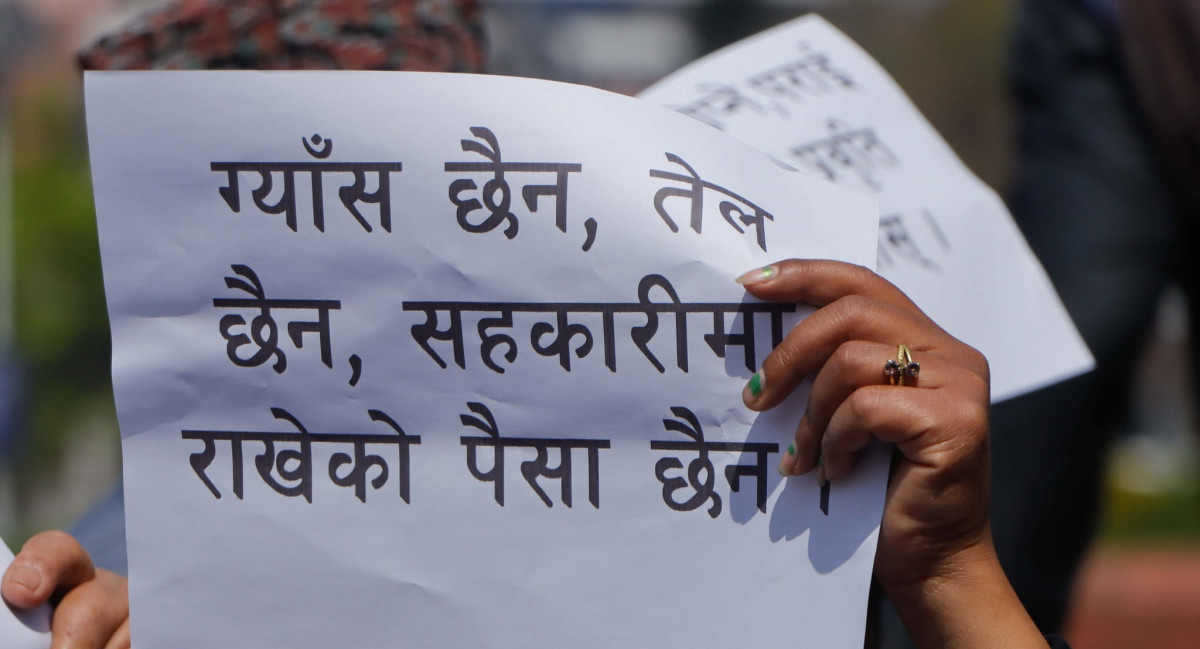 ग्याँस छैन, तेल
छैन, सहकारीमा
राखेको पैसा छैन ।